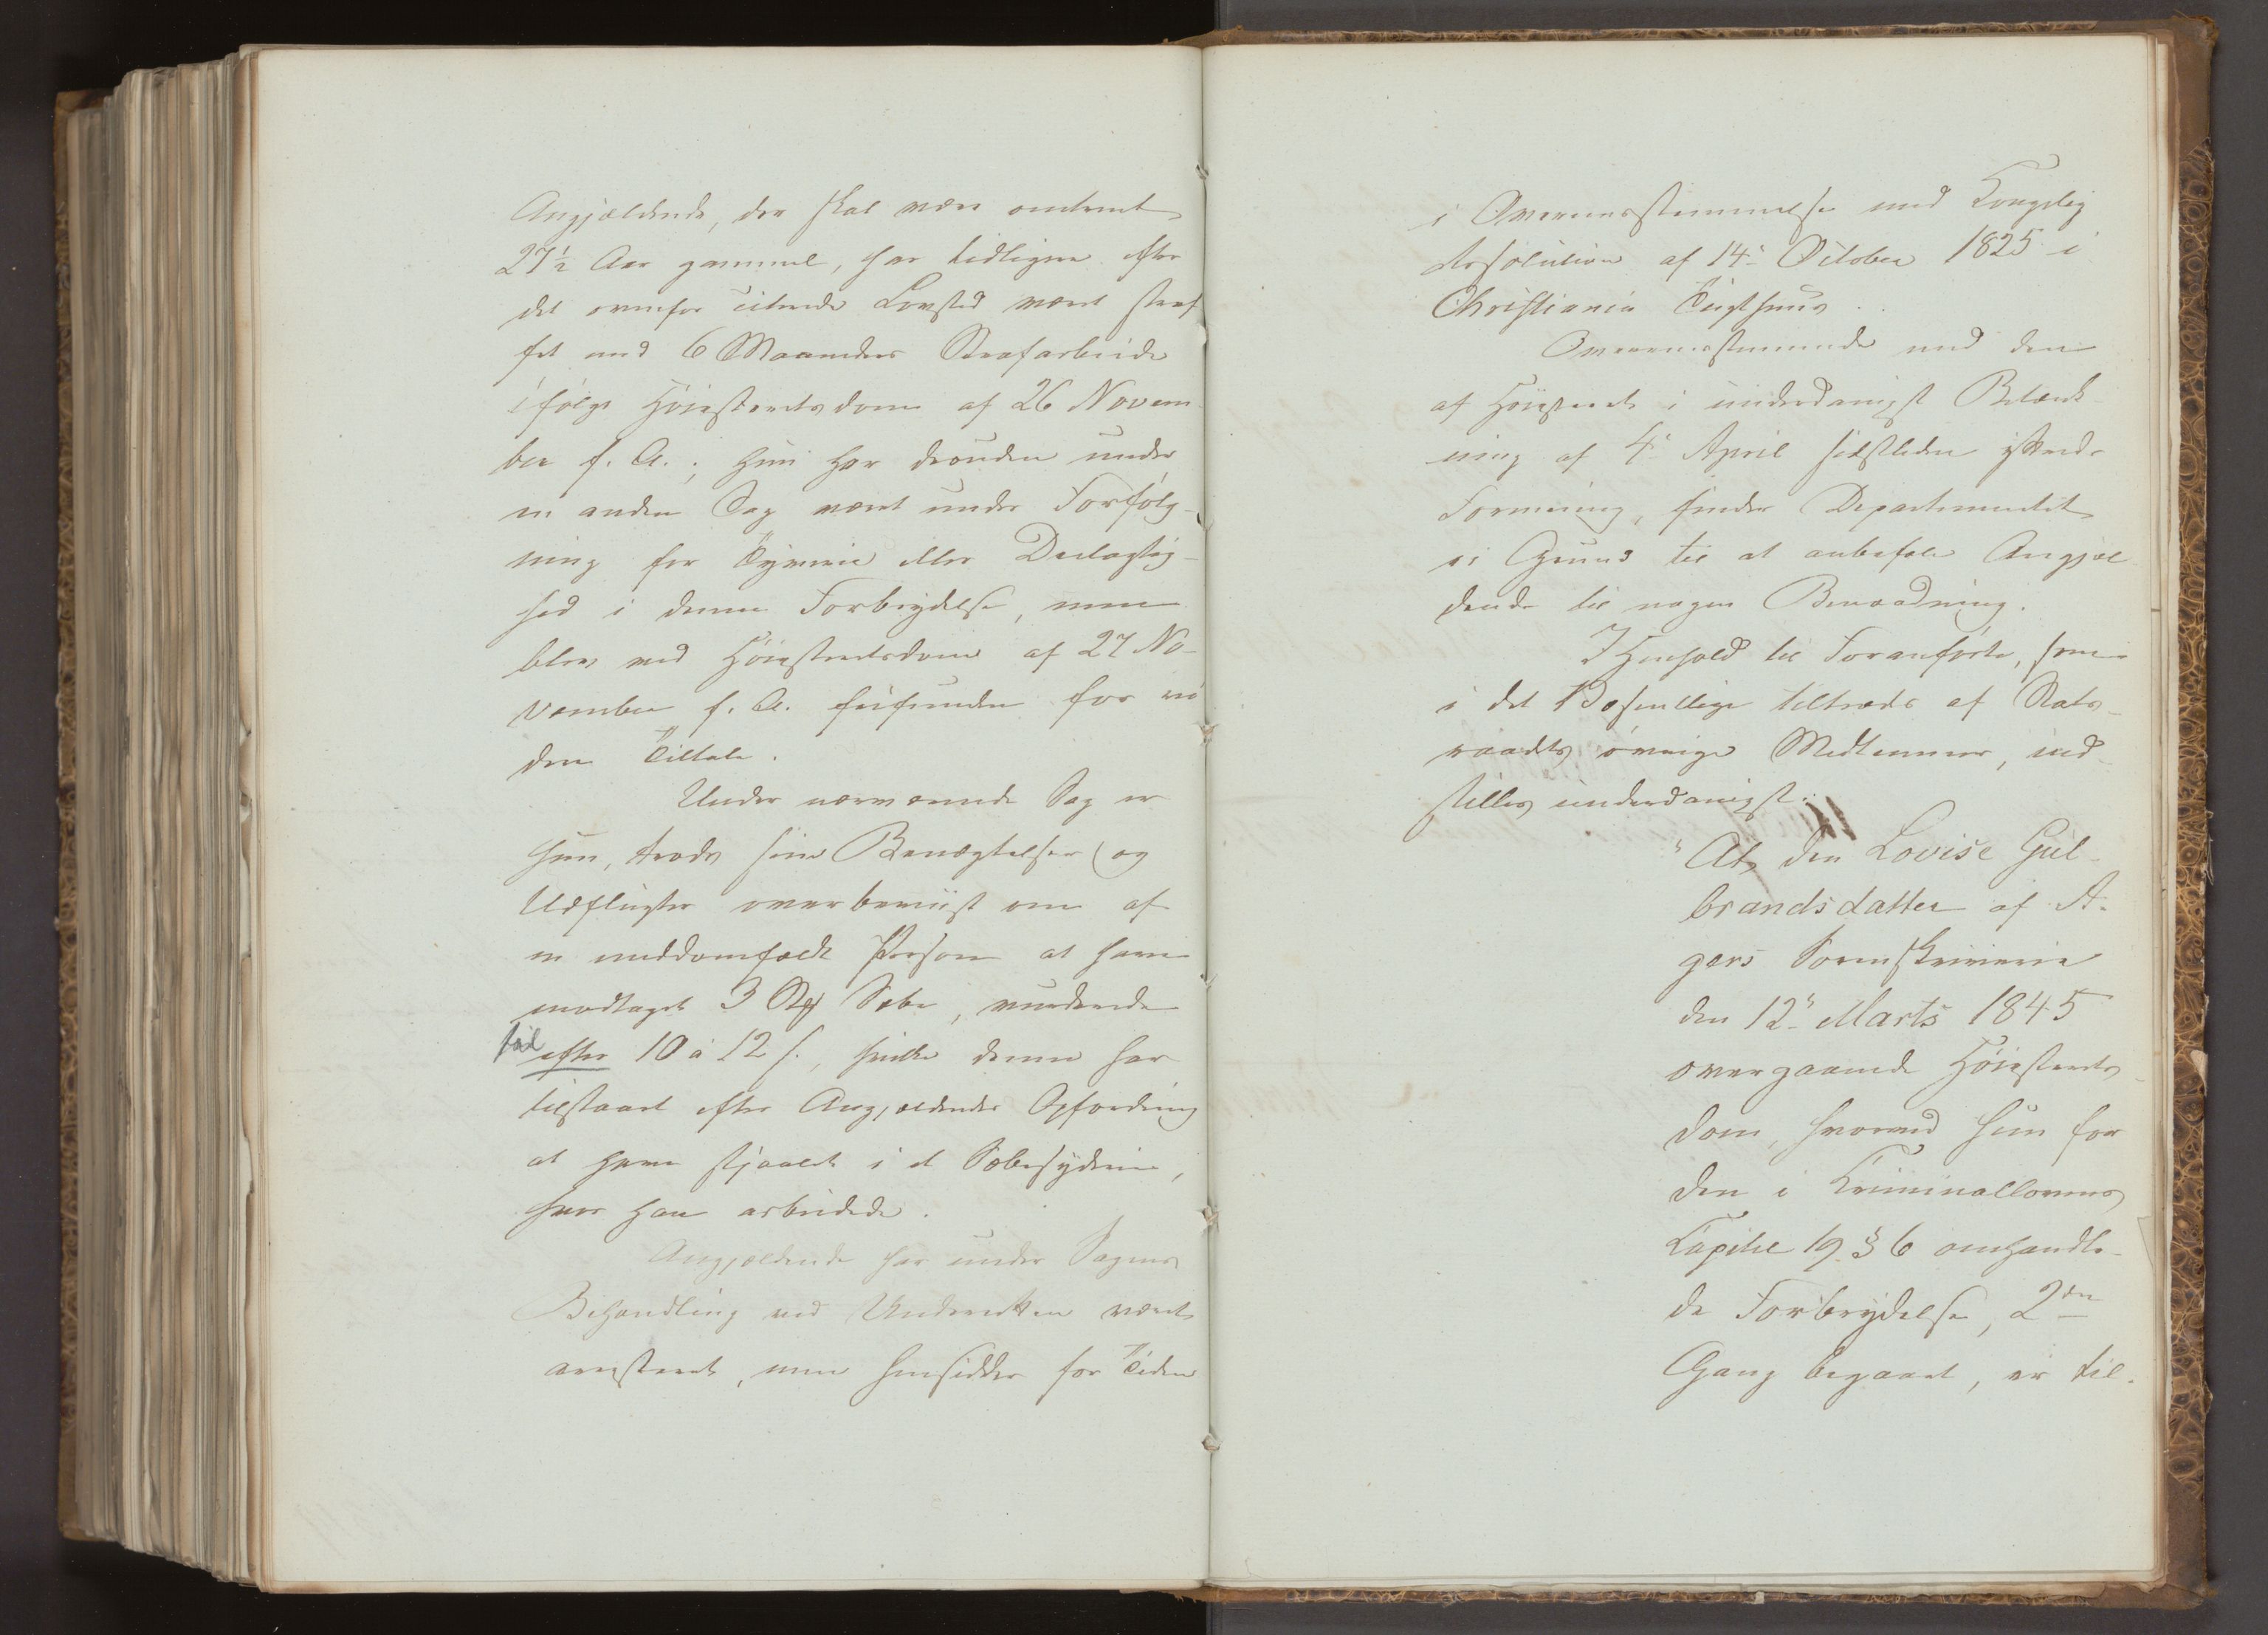 Angjældende, der skal være omtrent
27½ Aar gammel, har tidligere efter
det ovenfor citerede Lovsted været straf
fet med 6 Maaneders Strafarbeide
ifølge Høiesteretsdom af 26 Novem
ber f. A.; hun har desuden under
en anden Sag været under Forfølg-
ning for Tyverie eller Deelagtig-
hed i denne Forbrydelse, men
blev ved Høiesteretsdom af 27 No-
vember f. A. frifunden for vi
dere Tiltale.
Under nærværende Sag er
hun, trods sine Benægtelser og
Udflugter overbeviist om af
en meddomfældt Person at have
modtaget 3 Stkr Sæbe, vurderede
til
efter 10 à 12 s., hvilke denne har
tilstaaet efter Angjældendes Opfordring
at have stjaalet i et Sæbesyderie,
hvor han arbeidede.
Angjældende har under Sagens
Behandling ved Underretten været
arresteret, men hensidder for Tiden
i Overeensstemmelse med Kongelig
Resolution af 14de October 1825 i
Christiania Tugthuus.
Overeensstemmende med den
af Høiesteret i underdanigst Betænk-
ning af 4de April sidstleden yttrede
Formening, finder Departementet
ei Grund til at anbefale Angjæl
dende til nogen Benaadning.
I Henhold til Foranførte, som
i det Væsentlige tiltrædes af Stats-
raadets øvrige Medlemmer, ind-
stilles underdanigst:
"At den Lovise Gul-
brandsdatter af A-
gers Sorenskriverie
den 12te Marts 1845
overgaaende Høiesterets-
dom, hvorved hun for
den i Kriminallovens
Kapitel 19 § 6 omhandle-
de Forbrydelse, 2den
Gang begaaet, er til-